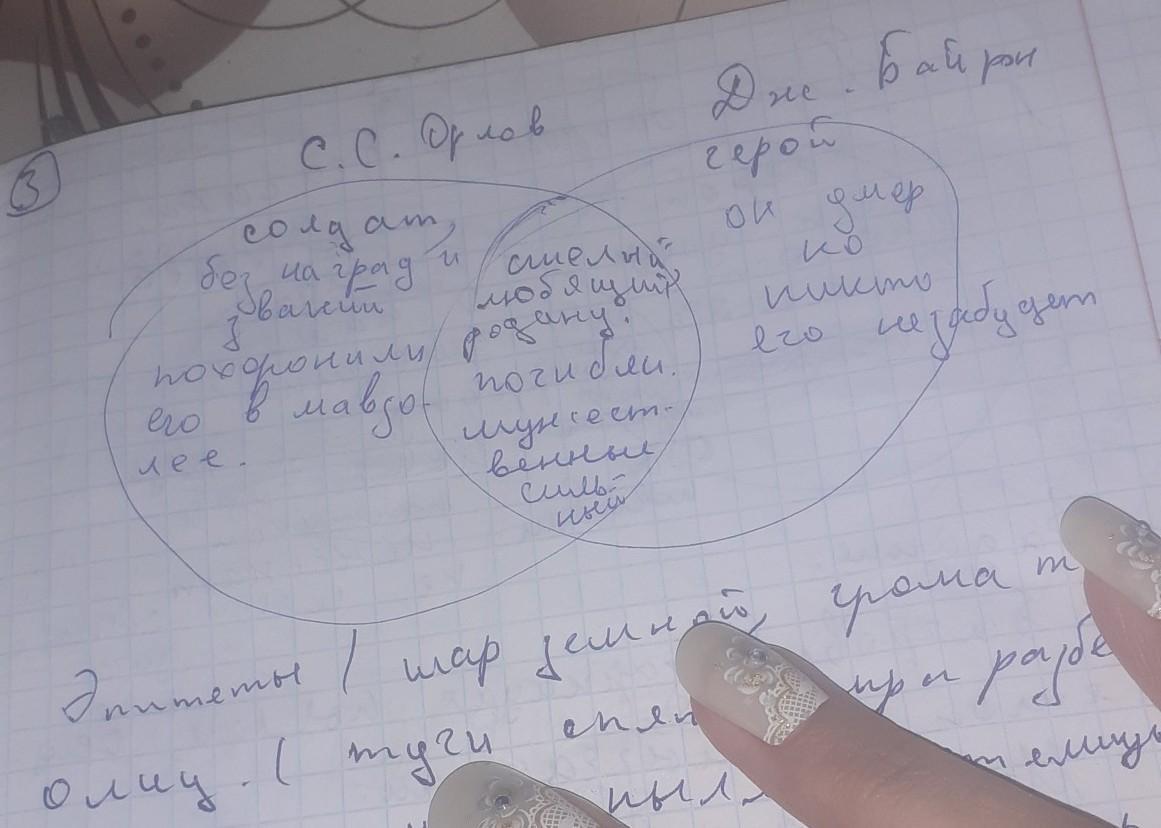 Дж. Байрон
С.С. Орлов
3
солдат,
без наград и
званий
похоронили
его в мавзо-
лее.
смелый,
любящий
родину.
погибли.
мужест-
венные
силь-
ный
герой
он умер
но
никто
его не забудет
Эпитеты / шар земной, грома
олиц. ( тучи